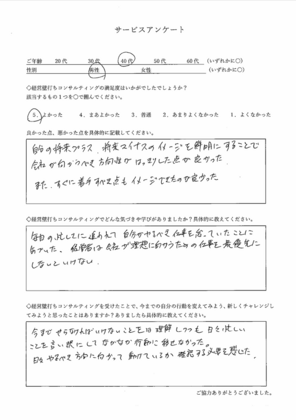 サービスアンケート
ご年齢 20代 30代 40代 50代 60代 (いずれかに○)
性別 男性 女性 (いずれかに○)
◇経営壁打ちコンサルティングの満足度はいかがでしたでしょうか?
該当するもの1つを○で囲んでください。
5. よかった 4. まあよかった 3. 普通 2. あまりよくなかった 1. よくなかった
良かった点、悪かった点を具体的に記載してください。
自分の将来プラス、将来マイナスのイメージを鮮明にすることで
会社が向かうべき方向性がはっきりした点が良かった。
また、すぐに着手すべき点もイメージできたのが良かった。
◇経営壁打ちコンサルティングでどんな気づきや学びがありましたか?具体的に教えてください。
毎日の忙しさに追われて自分がやるべき仕事を怠っていたことに
気づいた。経営者は会社が理想に向かうための仕事を最優先に
しないといけない。
◇経営壁打ちコンサルティングを受けたことで、今までの自分の行動を変えてみよう、新しくチャレンジ
してみようと思ったことはありますか?ありましたら具体的に教えてください。
今までやらなければいけないことを理解しつつも日々忙しい
ことを言い訳にしてなかなか行動に移せなかった。
日々やるべき方向に向かって動けているか確認する必要を感じた。
ご協力ありがとうございました。